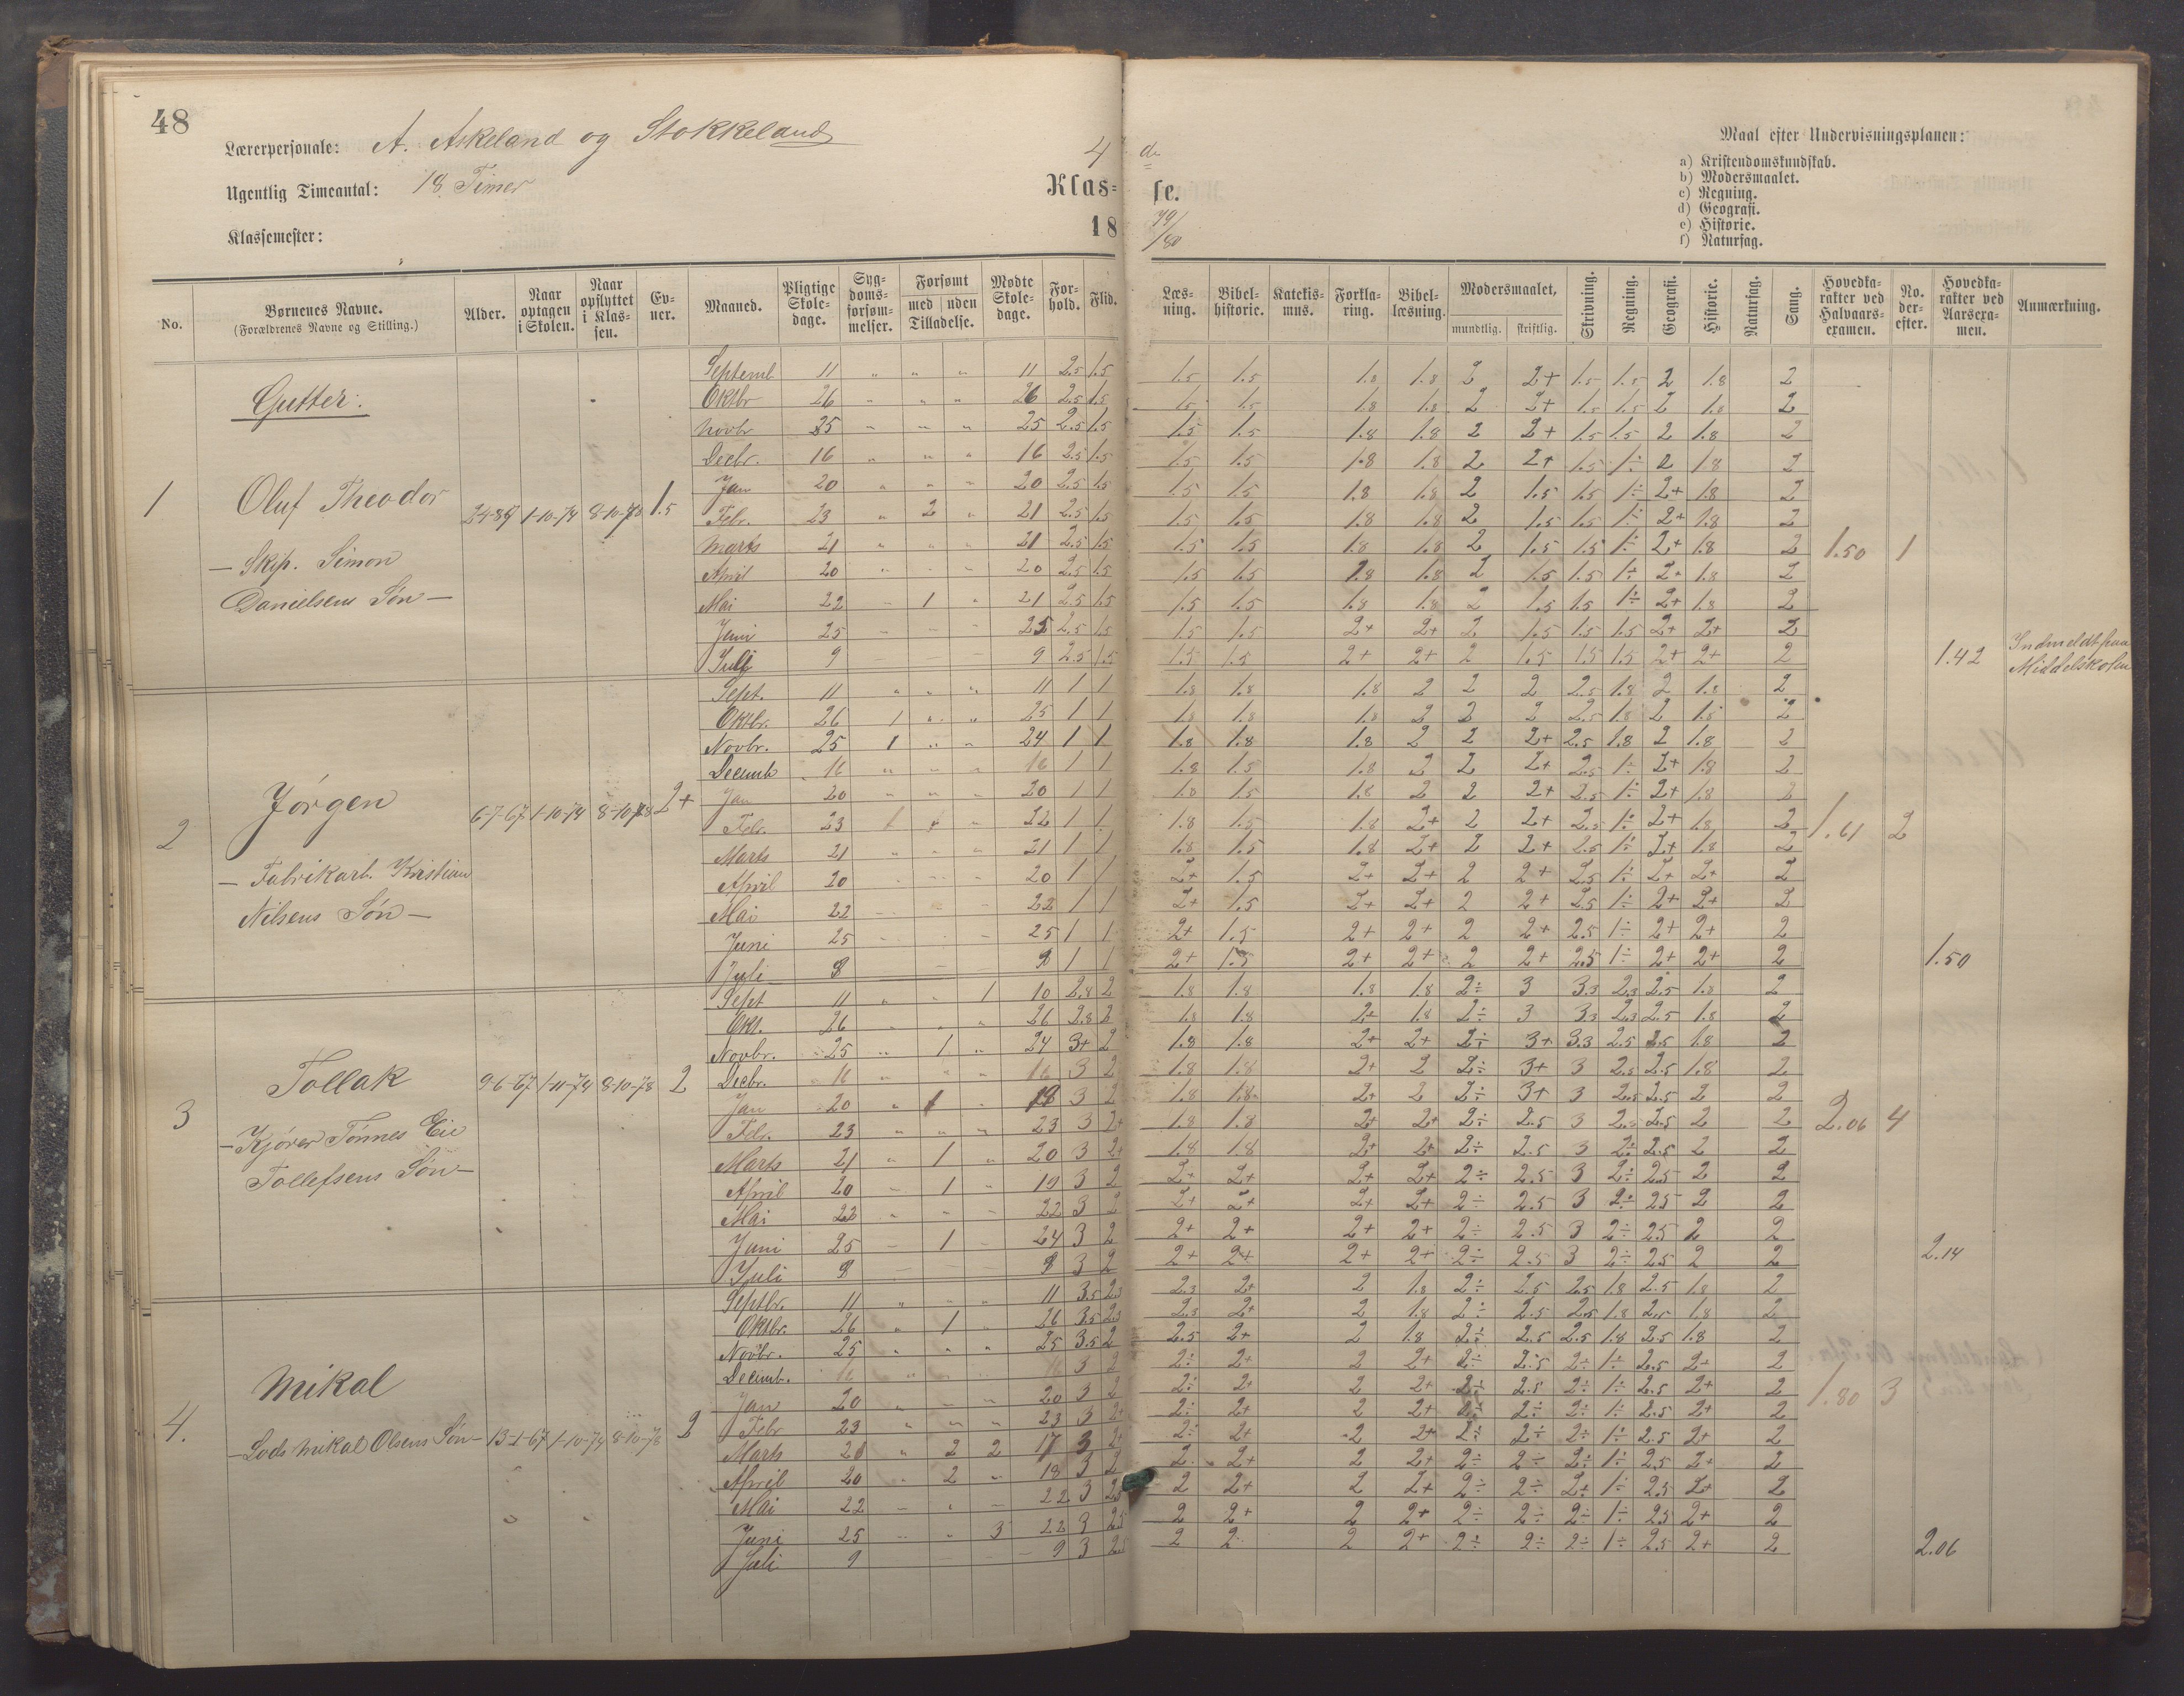 48
Lærerpersonale: A. Askeland og Stokkeland
Ugentlig Timeantal: 18 Timer
Klassemester:
4 de
Klasse.
18 79/80
Maal efter Undervisningsplanen:
a) Kristendomskundskab.
b) Modersmaalet.
c) Regning.
d) Geografi.
e) Historie.
f) Naturfag.
No. Børnenes Navne. (Forældrenes Navne og Stilling.) Alder. Naar optagen i Skolen. Naar opflyttet i Klassen. Evner. Maaned. Pligtige Skoledage. Sygdomsforsømmelser. Forsømt med uden Tilladelse. Mødte Skoledage. Forhold. Flid.
Læsning. Bibelhistorie. Katekismus. Forklaring. Bibellæsning. Modersmaalet, mundtlig. skriftlig. Skrivning. Regning. Geografi. Historie. Naturfag. Sang. Hovedkarakter ved Halvaarsexamen. No. derefter. Hovedkarakter ved Aarsexamen. Anmærkning.
Gutter:
Septemb 11 " " " 11 2.5 1.5 1.5 1.5 1.8 1.8 2 2+ 1.5 1.5 2 1.8 2
Oktbr 26 " " " 26 2.5 1.5 1.5 1.5 1.8 1.8 2 2+ 1.5 1.5 2 1.8 2
Novbr 25 " " " 25 2.5 1.5 1.5 1.5 1.8 1.8 2 2+ 1.5 1.5 2 1.8 2
Decbr. 16 " " " 16 2.5 1.5 1.5 1.5 1.8 1.8 2 2+ 1.5 1÷ 2 1.8 2
Jan 20 " " " 20 2.5 1.5 1.5 1.5 1.8 1.8 2 1.5 1.5 1÷ 2+ 1.8 2
1 Oluf Theodor 1-10-74 8-10-78 1.5
Febr. 23 " 2 " 21 2.5 1.5 1.5 1.5 1.8 1.8 2 1.5 1.5 1÷ 2+ 1.8 2
Marts 21 " " " 21 2.5 1.5 1.5 1.5 1.8 1.8 2 1.5 1.5 1÷ 2+ 1.8 2 1.50 1
— Skip. Simon
April 20 " - " 20 2.5 1.5 1.5 1.5 1.8 1.8 2 1.5 1.5 1÷ 2+ 1.8 2
Danielsens Søn —
Mai 22 - 1 " 21 2.5 1.5 1.5 1.5 1.8 1.8 2 1.5 1.5 1÷ 2+ 1.8 2
Juni 25 - - - 25 2.5 1.5 1.5 1.5 2+ 2+ 2 1.5 1.5 1.5 2+ 2+ 2
Juli 9 - - - 9 2.5 1.5 1.5 1.5 2+ 2+ 2 1.5 1.5 1.5 2+ 2+ 2 1.42 Indmeldt paa Middelskolen
Sept. 11 " " " 11 1 1 1.8 1.8 1.8 2 2 2 2.5 1.8 2 1.8 2
Oktbr. 26 1 " " 25 1 1 1.8 1.8 1.8 2 2 2 2.5 1.8 2 1.8 2
Novbr. 25 1 " " 24 1 1 1.8 1.8 1.8 2 2 2+ 2.5 1.8 2 1.8 2
Decemb 16 " " " 16 1 1 1.8 1.5 1.8 2 2 2+ 2.5 1÷ 2+ 1.8 2
2 Jørgen 6-7-67 1-10-74 8-10-78 2+
Jan 20 " " " 20 1 1 1.8 1.5 1.8 2 2 2+ 2.5 1÷ 2+ 1.8 2
Febr. 23 1 " 22 1 1 1.8 1.5 1.8 2+ 2 2+ 2.5 1÷ 2+ 1.8 2 1.61 2
Marts 21 " " " 21 1 1 1.8 1.5 1.8 2+ 2 2+ 2.5 1÷ 2+ 1.8 2
— Fabrikarb. Kristian
April 20 - - - 20 1 1 2+ 1.5 2+ 2+ 2 2+ 2.5 1÷ 2+ 2+ 2
Nilsens Søn —
Mai 22 - - - 22 1 1 2+ 1.5 2+ 2+ 2 2+ 2.5 1÷ 2+ 2+ 2
Juni 25 - - - 25 1 1 2+ 1.5 2+ 2+ 2 2+ 2.5 1÷ 2+ 2+ 2
Juli 9 - - 9 1 1 2+ 1.5 2+ 2+ 2 2+ 2.5 1÷ 2+ 2+ 2 1.50
Sept 11 " " 1 10 2.8 2 1.8 1.8 1.8 1.8 2÷ 3 3.3 2.3 2.5 1.8 2
Okt. 26 " " " 26 2.8 2 1.8 1.8 2+ 1.8 2÷ 3 3.3 2.3 2.5 1.8 2
Novbr. 25 " 1 " 24 3+ 2 1.8 1.8 2+ 2+ 2÷ 3+ 3.3 2.5 2.5 1.8 2
3 Tollak 9-6-67 1-11-74 8-10-78 2
Decbr. 16 " " " 16 3 2 1.8 1.8 2+ 2 2÷ 3+ 3 2.5 2.5 1.8 2
Jan 20 " 1 " 19 3 2 1.8 1.8 2+ 2 2÷ 3+ 3 2.5 2.5 2 2
Febr. 23 " " " 23 3 2+ 1.8 1.8 2+ 2+ 2÷ 2.5 3 2.5 2.5 2 2 2.06 4
— Kjører Tønnes Eie
Marts 21 " 1 " 20 3 2+ 1.8 1.8 2+ 2+ 2÷ 2.5 3 2÷ 2.5 2 2
Tollefsens Søn —
April 20 - 1 " 19 3 2 2+ 2+ 2+ 2+ 2÷ 2.5 3 2÷ 2.5 2 2
Mai 22 " " " 22 3 2 2+ 2+ 2+ 2+ 2÷ 2.5 3 2÷ 2.5 2 2
Juni 25 - 1 - 24 3 2 2+ 2+ 2+ 2+ 2÷ 2.5 3 2÷ 2.5 2 2
Juli 9 - - - 9 3 2 2+ 2+ 2+ 2+ 2÷ 2.5 3 2÷ 2.5 2 2 2.14
Septbr. 11 " - " 11 3.5 2.3 2.3 2+ 2 1.8 2÷ 2.5 2.5 1.8 2.5 1.8 2
Oktbr. 26 " 1 " 26 3.5 2.3 2.3 2+ 2 1.8 2÷ 2.5 2.5 1.8 2.5 1.8 2
Novbr. 25 " " " 25 3.5 2 2.5 2+ 2 1.8 2÷ 2.5 2.5 1.8 2.5 1.8 2
Decemb. 16 " 16 3 2 2÷ 2+ 2 2+ 2÷ 2.5 2÷ 1÷ 2.5 2+ 2
Mikal
Jan 20 " " " 20 3 2 2÷ 2+ 2 2+ 2÷ 2.5 2÷ 1÷ 2.5 2+ 2 1.80 3
Febr 23 " " " 23 3 2+ 2÷ 2+ 2 2+ 2÷ 2÷ 2÷ 1÷ 2.5 2+ 2
4. — Lods Mikal Olsens Søn — 13-1-67 1-10-74 8-10-78 2
Marts 21 " 2 2 17 3 2+ 2÷ 2+ 2 2+ 2÷ 2÷ 2÷ 1÷ 2.5 2+ 2
April 20 " 2 " 18 3 2 2 2+ 2 2+ 2÷ 2÷ 2÷ 1÷ 2.5 2+ 2
Mai 22 - " - 22 3 2.5 2 2+ 2 2+ 2÷ 2÷ 2÷ 1÷ 2.5 2+ 2
Juni 25 - " 3 22 3 2.5 2 2+ 2 2+ 2÷ 2÷ 2÷ 1÷ 2.5 2+ 2
Juli 9 - - - 9 3 2.5 2 2 2 2+ 2÷ 2÷ 2÷ 1÷ 2.5 2+ 2 2.06